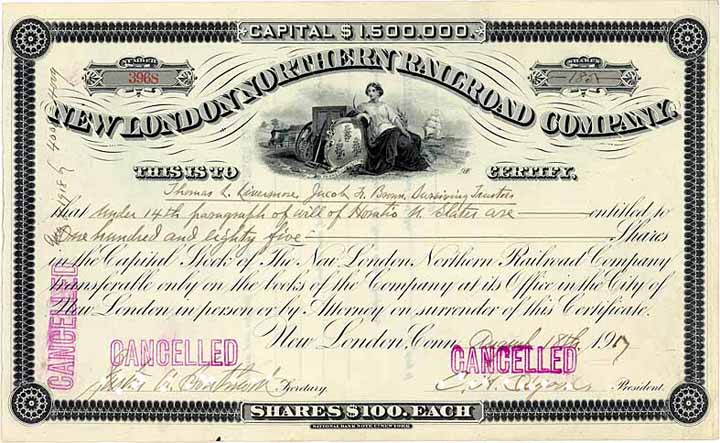 CAPITAL $1,500,000.
NUMBER
3968
SHARES
-185-
NEW LONDON NORTHERN RAILROAD COMPANY.
THIS IS TO CERTIFY,
Thomas L. Livermore, Jacob F. Brown, Surviving Trustees
that under 14th paragraph of will of Horatio N. Slater are entitled to
One hundred and eighty five Shares
in the Capital Stock of The New London Northern Railroad Company
transferable only on the books of the Company at its Office in the City of
New London in person or by Attorney on surrender of this Certificate.
New London, Conn. 18th 1917
CANCELLED
CANCELLED
CANCELLED
Secretary.
President.
SHARES $100. EACH
NATIONAL BANK NOTE CO. NEW YORK